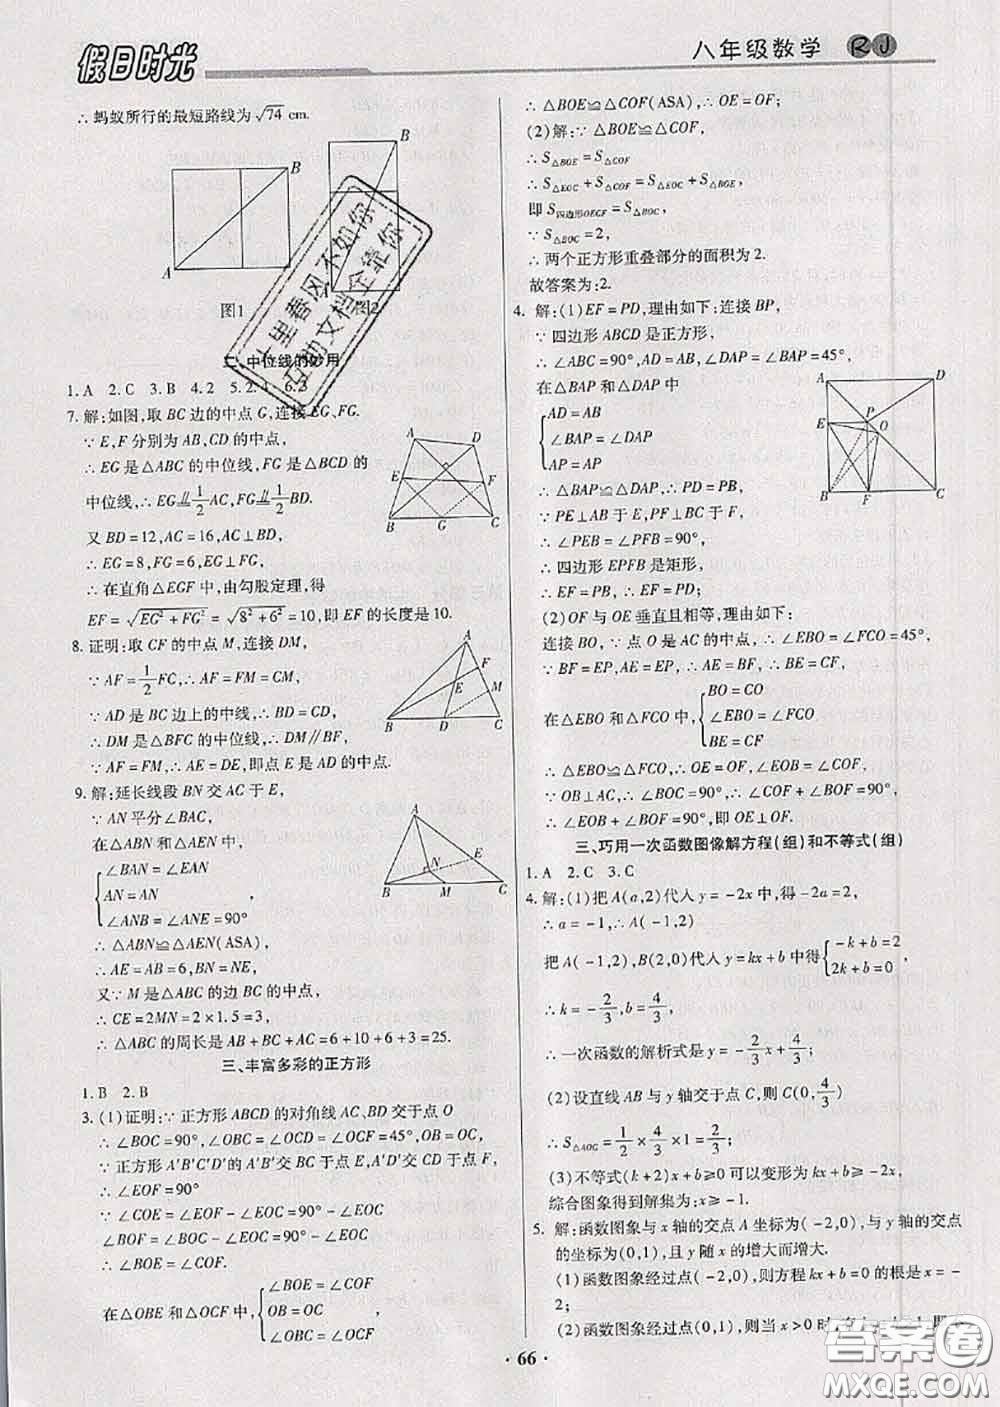 假日时光
八年级数学 RJ
∴蚂蚁所行的最短路线为√74 cm.
B
A
图1
B
图2
十里春风不如你
互助文档全靠你
二、中位线的妙用
1.A 2.C 3.B 4.2 5.2.4 6.3
7.解:如图,取BC边的中点G,连接EG、FG.
∵E,F分别为AB,CD的中点,
∴EG是△ABC的中位线,FG是△BCD的
中位线,∴EG∥=1/2AC,FG∥=1/2BD.
又BD=12,AC=16,AC⊥BD,
∴EG=8,FG=6,EG⊥FG,
∴在直角△EGF中,由勾股定理,得
EF=√(EG²+FG²)=√(8²+6²)=10,即EF的长度是10.
A D E F B G C
8.证明:取CF的中点M,连接DM,
∵AF=1/2FC,∴AF=FM=CM,
∵AD是BC边上的中线,∴BD=CD,
∴DM是△BFC的中位线,∴DM∥BF,
∵AF=FM,∴AE=DE,即点E是AD的中点.
A F E M B D C
9.解:延长线段BN交AC于E,
∵AN平分∠BAC,
在△ABN和△AEN中,
{∠BAN=∠EAN
AN=AN
∠ANB=∠ANE=90°
∴△ABN≌△AEN(ASA),
∴AE=AB=6,BN=NE,
又∵M是△ABC的边BC的中点,
∴CE=2MN=2×1.5=3,
∴△ABC的周长是AB+BC+AC=6+10+6+3=25.
A N E B M C
三、丰富多彩的正方形
1.B 2.B
3.(1)证明:∵正方形ABCD的对角线AC、BD交于点O
∴∠BOC=90°,∠OBC=∠OCD=∠OCF=45°,OB=OC,
∵正方形A'B'C'D'的A'B'交BC于点E,A'D'交CD于点F,
∴∠EOF=90°
∴∠COE=∠EOF-∠EOC=90°-∠COE
∴∠BOF=∠COF,
在△OBE和△OCF中,{∠BOE=∠COF
OB=OC ,
∠OBC=∠OCF
∴△BOE≌△COF(ASA),∴OE=OF;
(2)解:∵△BOE≌△COF,
∴S△BOE=S△COF
∴S△EOC+S△COF=S△EOC+S△BOE,
即S四边形OECF=S△BOC,
∵S△BOC=2,
∴两个正方形重叠部分的面积为2.
故答案为:2.
4. 解:(1)EF=PD,理由如下:连接BP,
∵四边形ABCD是正方形,
∴∠ABC=90°,AD=AB,∠DAP=∠BAP=45°,
在△BAP和△DAP中
{AD=AB
∠BAP=∠DAP
AP=AP
∴△BAP≌△DAP,∴PD=PB,
∵PE⊥AB于E,PF⊥BC于F,
∴∠PEB=∠PFB=90°,
∴四边形EBFP是矩形,
∴EF=PB,∴EF=PD;
A D P E O B F C
(2)OF与OE垂直且相等,理由如下:
连接BO,∵点O是AC的中点,∴∠EBO=∠FCO=45°,
∵BF=EP,AE=EP,∴AE=BF,∴BE=FC,
在△EBO和△FCO中,{BO=CO
∠EBO=∠FCO
BE=CF
∴△EBO≌△FCO,∴OE=OF,∠EOB=∠COF,
∵OB⊥AC,∴∠BOC=90°,∴∠COF+∠BOF=90°,
∴∠EOB+∠BOF=90°,即OE⊥OF.
三、巧用一次函数图像解方程(组)和不等式(组)
1.A 2.C 3.C
4.解:(1)把A(a,2)代入y=-2x中,得-2a=2,
∴a=-1,∴A(-1,2)
把A(-1,2),B(2,0)代入y=kx+b中得{-k+b=2
2k+b=0 ,
∴k=-2/3,b=4/3,
∴一次函数的解析式是y=-2/3x+4/3;
(2)设直线AB与y轴交于点C,则C(0,4/3)
∴S△AOC=1/2×4/3×1=2/3;
(3)不等式(k+2)x+b≥0可以变形为kx+b≥-2x,
综合图象得到解集为:x≥-1.
5. 解:函数图象与x轴的交点A坐标为(-2,0),与y轴的交点
的坐标为(0,1),且y随x的增大而增大.
(1)函数图象经过点(-2,0),则方程kx+b=0的根是x=-
2;
(2)函数图象经过点(0,1),则当x>0时
· 66 ·
答案圈
MXQE.COM